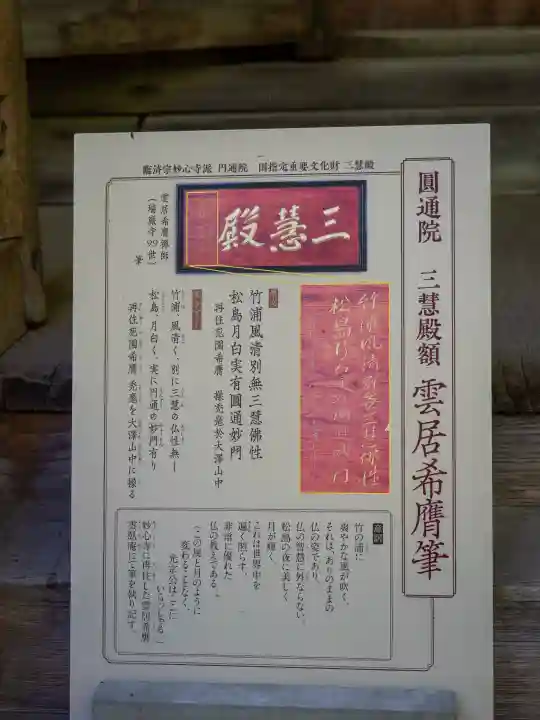 臨済宗妙心寺派 円通院 国指定重要文化財 三慧殿
圓通院 三慧殿額 雲居希膺筆
三慧殿
雲居希膺禅師
(瑞巌寺99世)
筆
竹浦風清別無三慧佛性
松島月白実有圓通妙門
再住花園希膺 操禿毫於大澤山中
竹浦、風清く、別に三慧の仏性無し
松島、月白く、実に円通の妙門有り
再住花園希膺 禿毫を大澤山中に操る
意訳
竹の浦に
爽やかな風が吹く。
それは、ありのままの
仏の姿であり、
仏の智慧に外ならない。
松島の夜に美しく
月が輝く。
これは世界中を
遍く照らす、
非常に優れた
仏の教えである。
「この風と月のように
変わることなく、
光宗公はここに
いらっしゃる」
妙心寺に再住した雲居希膺